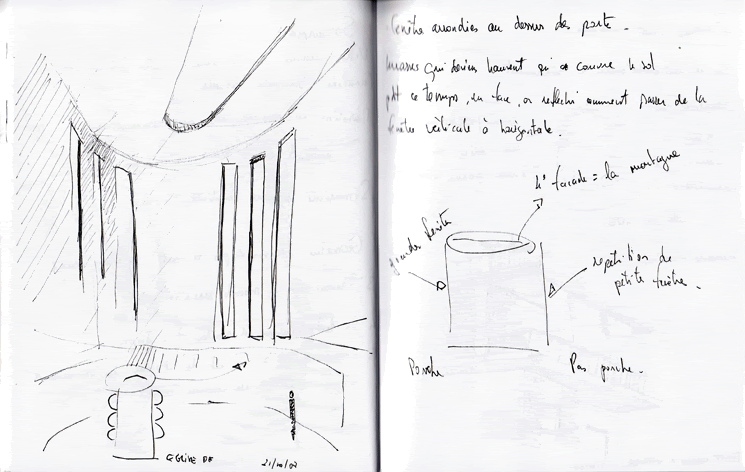 EGLISE DE
21/10/07
Fenêtre arrondies au dessus des porte.
qui devien qui se couvre le sol
ce temps, en face, on réfléchi comment passer de la
fenêtre verticale à horizontale.
4° façade = la montagne
grandes fenêtre
répétition de
petite fenêtre.
Porche
Pas porche.